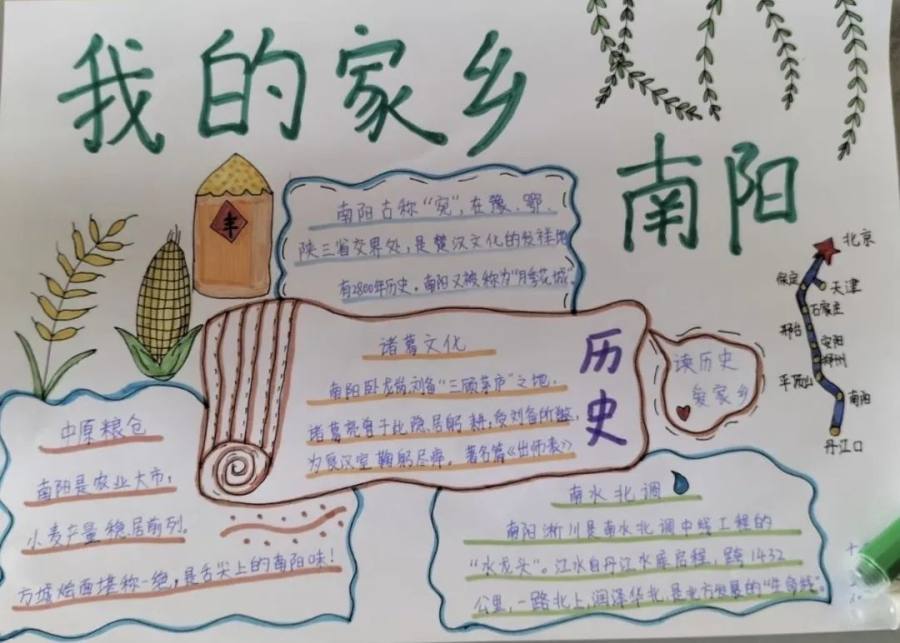 我的家乡
南阳
丰
南阳古称“宛”,在豫、鄂、
陕三省交界处,是楚汉文化的发祥地
有2800年历史。南阳又被称为“月季花城”
诸葛文化
南阳卧龙岗,刘备“三顾茅庐”之地。
诸葛亮曾于此隐居躬耕,受刘备所邀,
为复汉室鞠躬尽瘁。著名篇《出师表》
历史
读历史
爱家乡
北京
天津
保定
石家庄
邢台
安阳
郑州
平顶山
南阳
丹江口
中原粮仓
南阳是农业大市,
小麦产量稳居前列。
方城烩面堪称一绝,是舌尖上的南阳味!
南水北调
南阳淅川是南水北调中线工程的
“水龙头”。江水自丹江水库启程,跨1432
公里,一路北上,润泽华北,是北方发展的“生命线”。